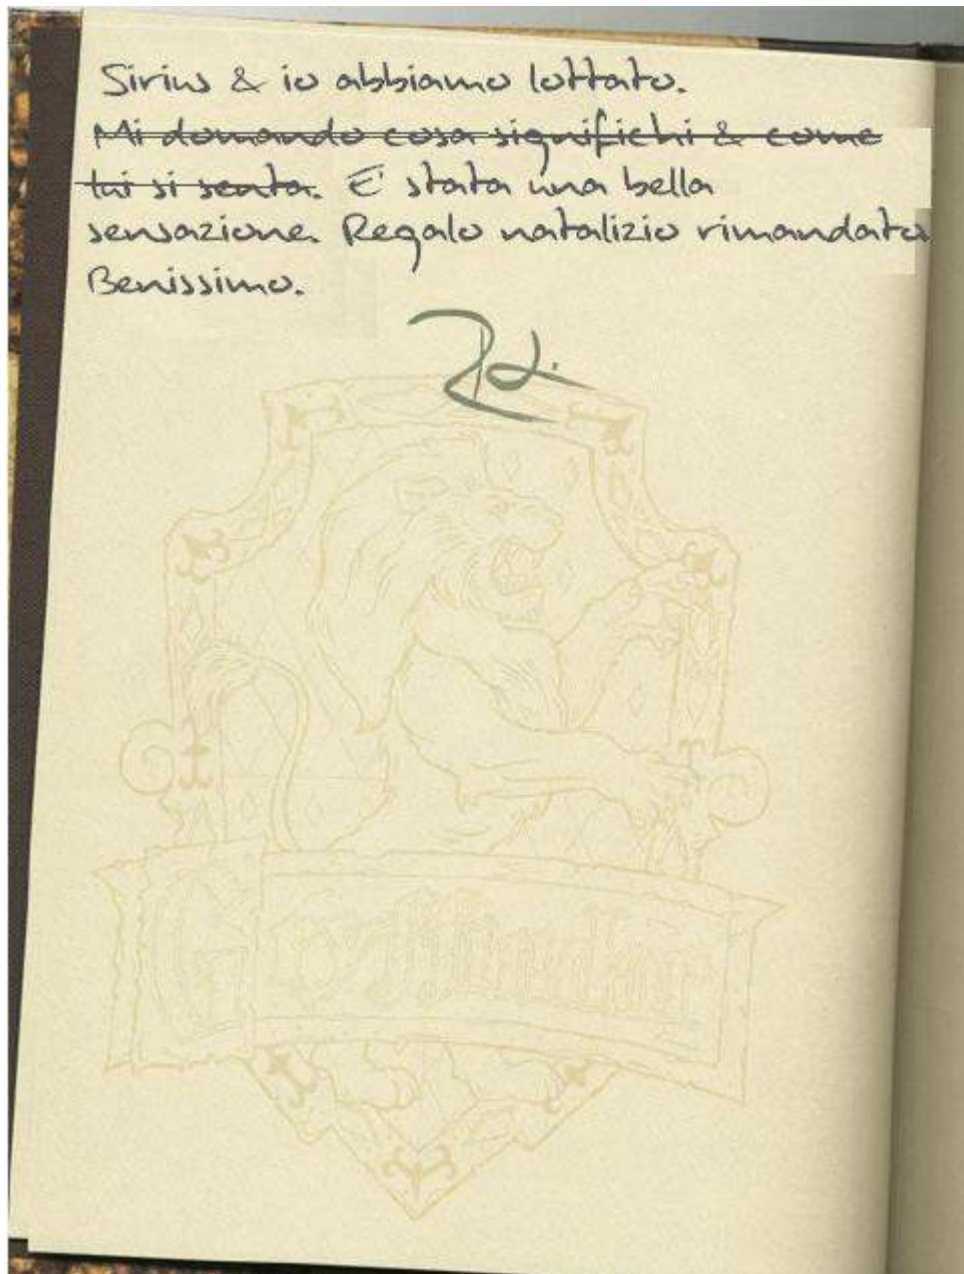 Sirius & io abbiamo lottato.
Mi domando cosa significhi & come
lui si senta. E' stata una bella
sensazione. Regalo natalizio rimandato
Benissimo.
RL.
Gryffindor